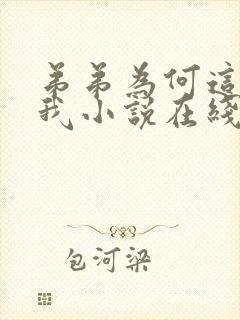 弟弟為何這
我小說在綫
包河梁